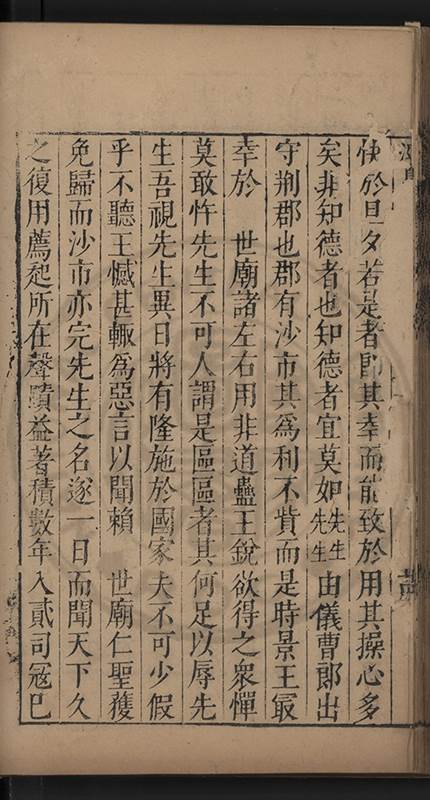 快於旦夕若是者即其幸而能致於用其操心多
矣非知德者也知德者宜莫如先生先生由儀曹郎出
守荆郡也郡有沙市其為利不貲而是時景王最
幸於 世廟諸左右用非道蠱王銳欲得之衆憚
莫敢忤先生不可人謂是區區者其何足以辱先
生吾視先生異日將有隆施於國家夫不可少假
乎不聽王憾甚輙為惡言以聞賴 世廟仁聖獲
免歸而沙市亦完先生之名遂一日而聞天下久
之復用薦起所在聲蹟益著積數年入貳司冦巳